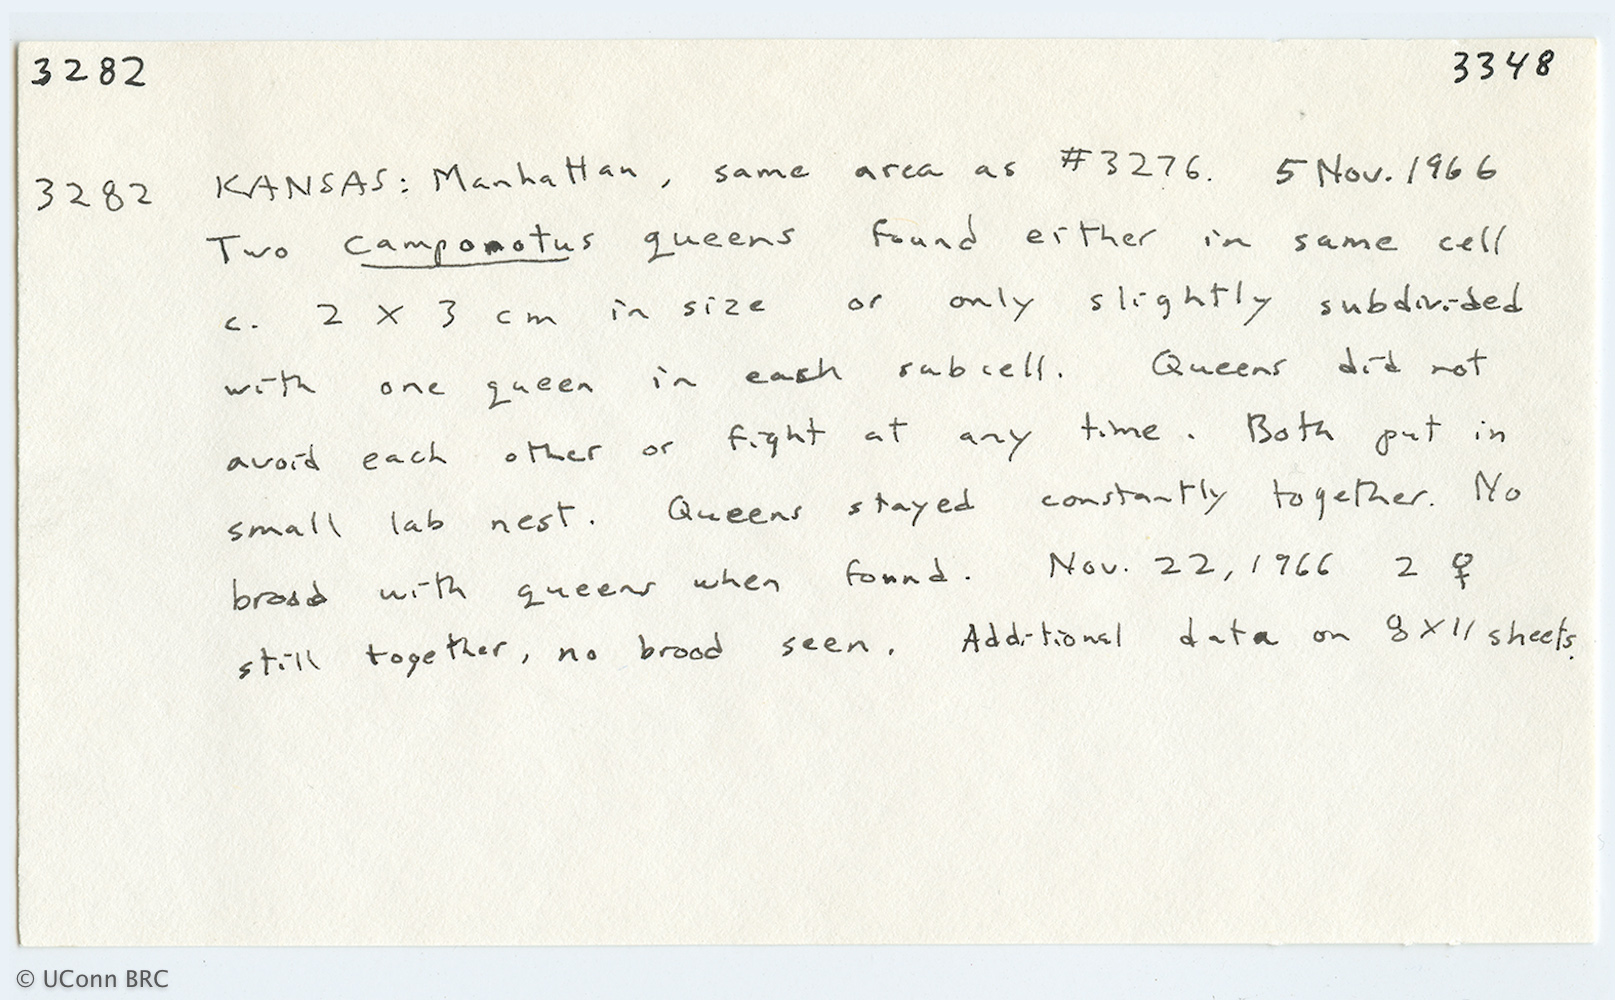 3282 3348
3282 KANSAS: Manhattan, same area as #3276. 5 Nov. 1966
Two Camponotus queens found either in same cell
c. 2 X 3 cm in size or only slightly subdivided
with one queen in each subcell. Queens did not
avoid each other or fight at any time. Both put in
small lab nest. Queens stayed constantly together. No
brood with queens when found. Nov. 22, 1966 2 ♀
still together, no brood seen. Additional data on 8 X 11 sheets.
© UConn BRC